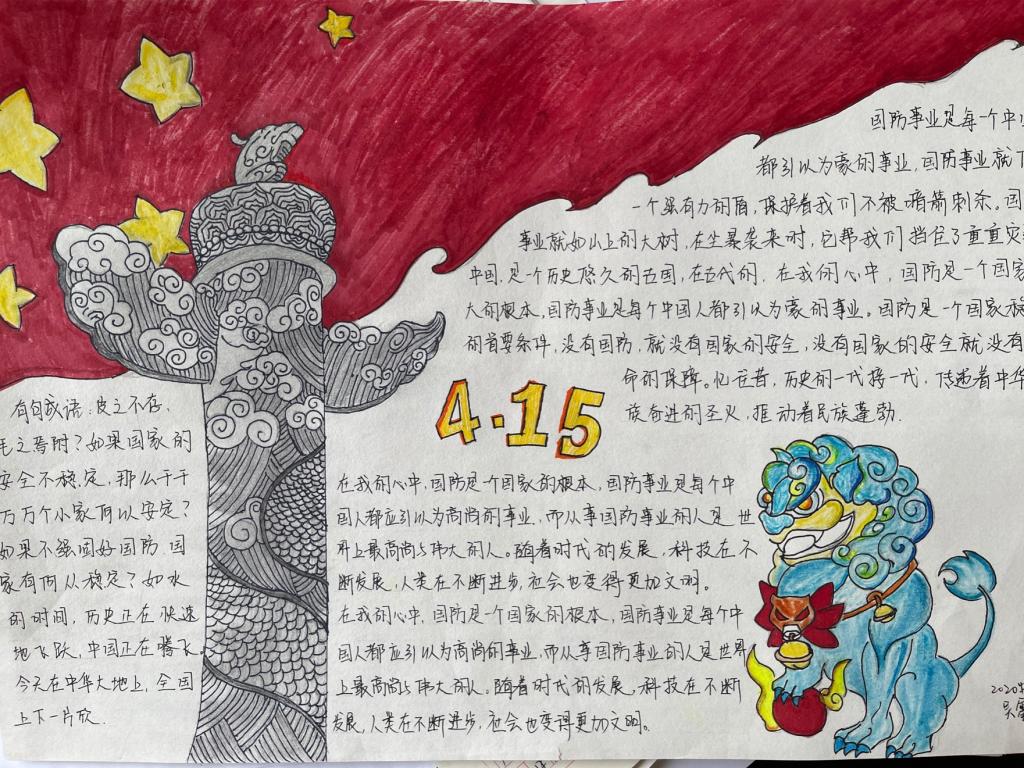 国防事业是每一个中
都引以为豪的事业,国防事业就
一个强有力的盾,保护着我们不被暗箭刺杀。国
事业就如山上的大树,在尘暴袭来时,它帮我们挡住了重重灾
中国,是一个历史悠久的古国,在古代的,在我的心中,国防是一个国家
大的根本,国防事业是每个中国人都引以为豪的事业。国防是一个国家
的首要条件,没有国防,就没有国家的安全,没有国家的安全就没有
命的保障。忆往昔,历史的一代接一代,传递着中华
族奋进的圣火,推动着民族蓬勃.
4·15
有句成语:皮之不存,
毛之焉附?如果国家的
安全不稳定,那么千千
万万个小家何以安定?
如果不强固好国防,国
家有何从稳定?如水
的时间,历史正在快速
地飞跃,中国正在腾飞.
今天在中华大地上,全国
上下一片欣.
在我的心中,国防是一个国家的根本,国防事业是每个中
国人都应引以为高尚的事业,而从事国防事业的人是世
界上最高尚与伟大的人。随着时代的发展,科技在不
断发展,人类在不断进步,社会也变得更加文明。
在我的心中,国防是一个国家的根本,国防事业是每个中
国人都应引以为高尚的事业,而从事国防事业的人是世界
上最高尚与伟大的人。随着时代的发展,科技在不断
发展,人类在不断进步,社会也变得更加文明。
2020
吴